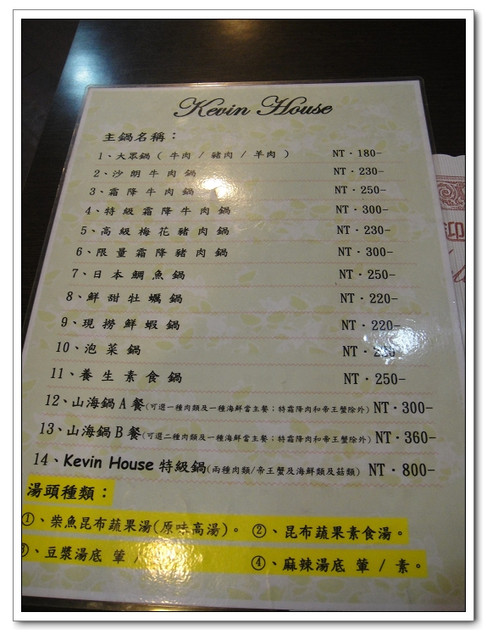 Kevin House
主鍋名稱：
1、大眾鍋（牛肉 / 豬肉 / 羊肉） NT・180-
2、沙朗牛肉鍋 NT・230-
3、霜降牛肉鍋 NT・250-
4、特級霜降牛肉鍋 NT・300-
5、高級梅花豬肉鍋 NT・230-
6、限量霜降豬肉鍋 NT・300-
7、日本鯛魚鍋 NT・250-
8、鮮甜牡蠣鍋 NT・220-
9、現撈鮮蝦鍋 NT・220-
10、泡菜鍋 NT・
11、養生素食鍋 NT・250-
12、山海鍋A餐(可選一種肉類及一種海鮮當主餐；特霜降肉和帝王蟹除外) NT・300-
13、山海鍋B餐(可選二種肉類及一種海鮮當主餐；特霜降肉和帝王蟹除外) NT・360-
14、Kevin House 特級鍋(兩種肉類/帝王蟹及海鮮類及菇類) NT・800-
湯頭種類：
①、柴魚昆布蔬果湯(原味高湯)。 ②、昆布蔬果素食湯。
、豆漿湯底 葷 / ④、麻辣湯底 葷 / 素。